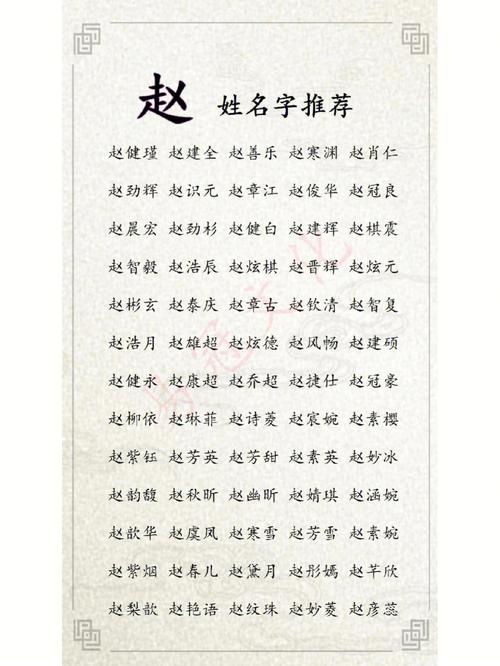 赵 姓名字推荐
赵健瑾 赵建全 赵善乐 赵寒渊 赵肖仁
赵劲辉 赵识元 赵章江 赵俊华 赵冠良
赵晨宏 赵劲杉 赵健白 赵建辉 赵棋震
赵智毅 赵浩辰 赵炫棋 赵晋辉 赵炫元
赵彬玄 赵泰庆 赵章古 赵钦清 赵智复
赵浩月 赵雄超 赵炫德 赵风畅 赵建硕
赵健永 赵康超 赵乔超 赵捷仕 赵冠豪
赵柳依 赵琳菲 赵诗菱 赵宸婉 赵素樱
赵紫钰 赵芳英 赵芳甜 赵素英 赵妙冰
赵韵馥 赵秋昕 赵幽昕 赵婧琪 赵涵婉
赵歆华 赵虞凤 赵寒雪 赵芳雪 赵素婉
赵紫烟 赵春儿 赵黛月 赵彤嫣 赵芊欣
赵梨歆 赵艳语 赵纹珠 赵妙菱 赵彦蕊